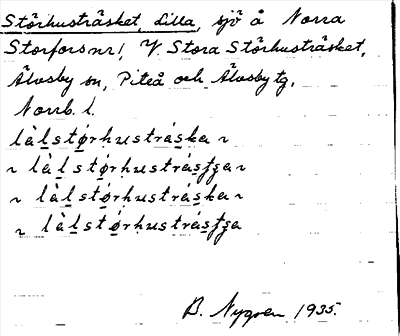 Störhusträsket, Lilla, sjö å Norra
Storfors nr 1, V Stora Störhusträsket,
Älvsby sn, Piteå och Älvsby tg,
Norrb. l.
làlstørhustráska ~
~ làlstørhustrásʃʒa ~
~ làlstórhustráska ~
~ làlstórhustrásʃʒa
B. Nygren 1935.